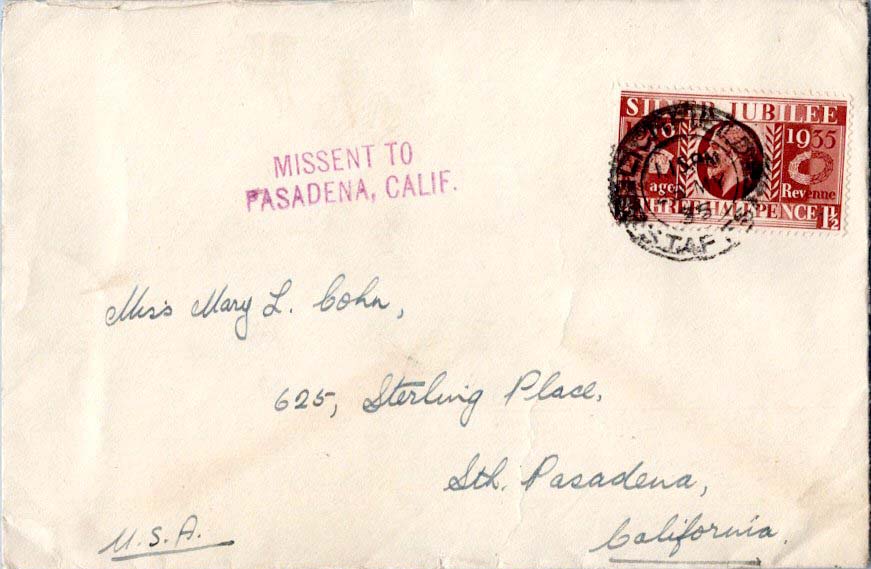 SILVER JUBILEE
1935
Revenue
THREE HALFPENCE 1½
STAFFS
MISSENT TO
PASADENA, CALIF.
Miss Mary L. Cohn,
625, Sterling Place,
Sth. Pasadena,
California.
U.S.A.